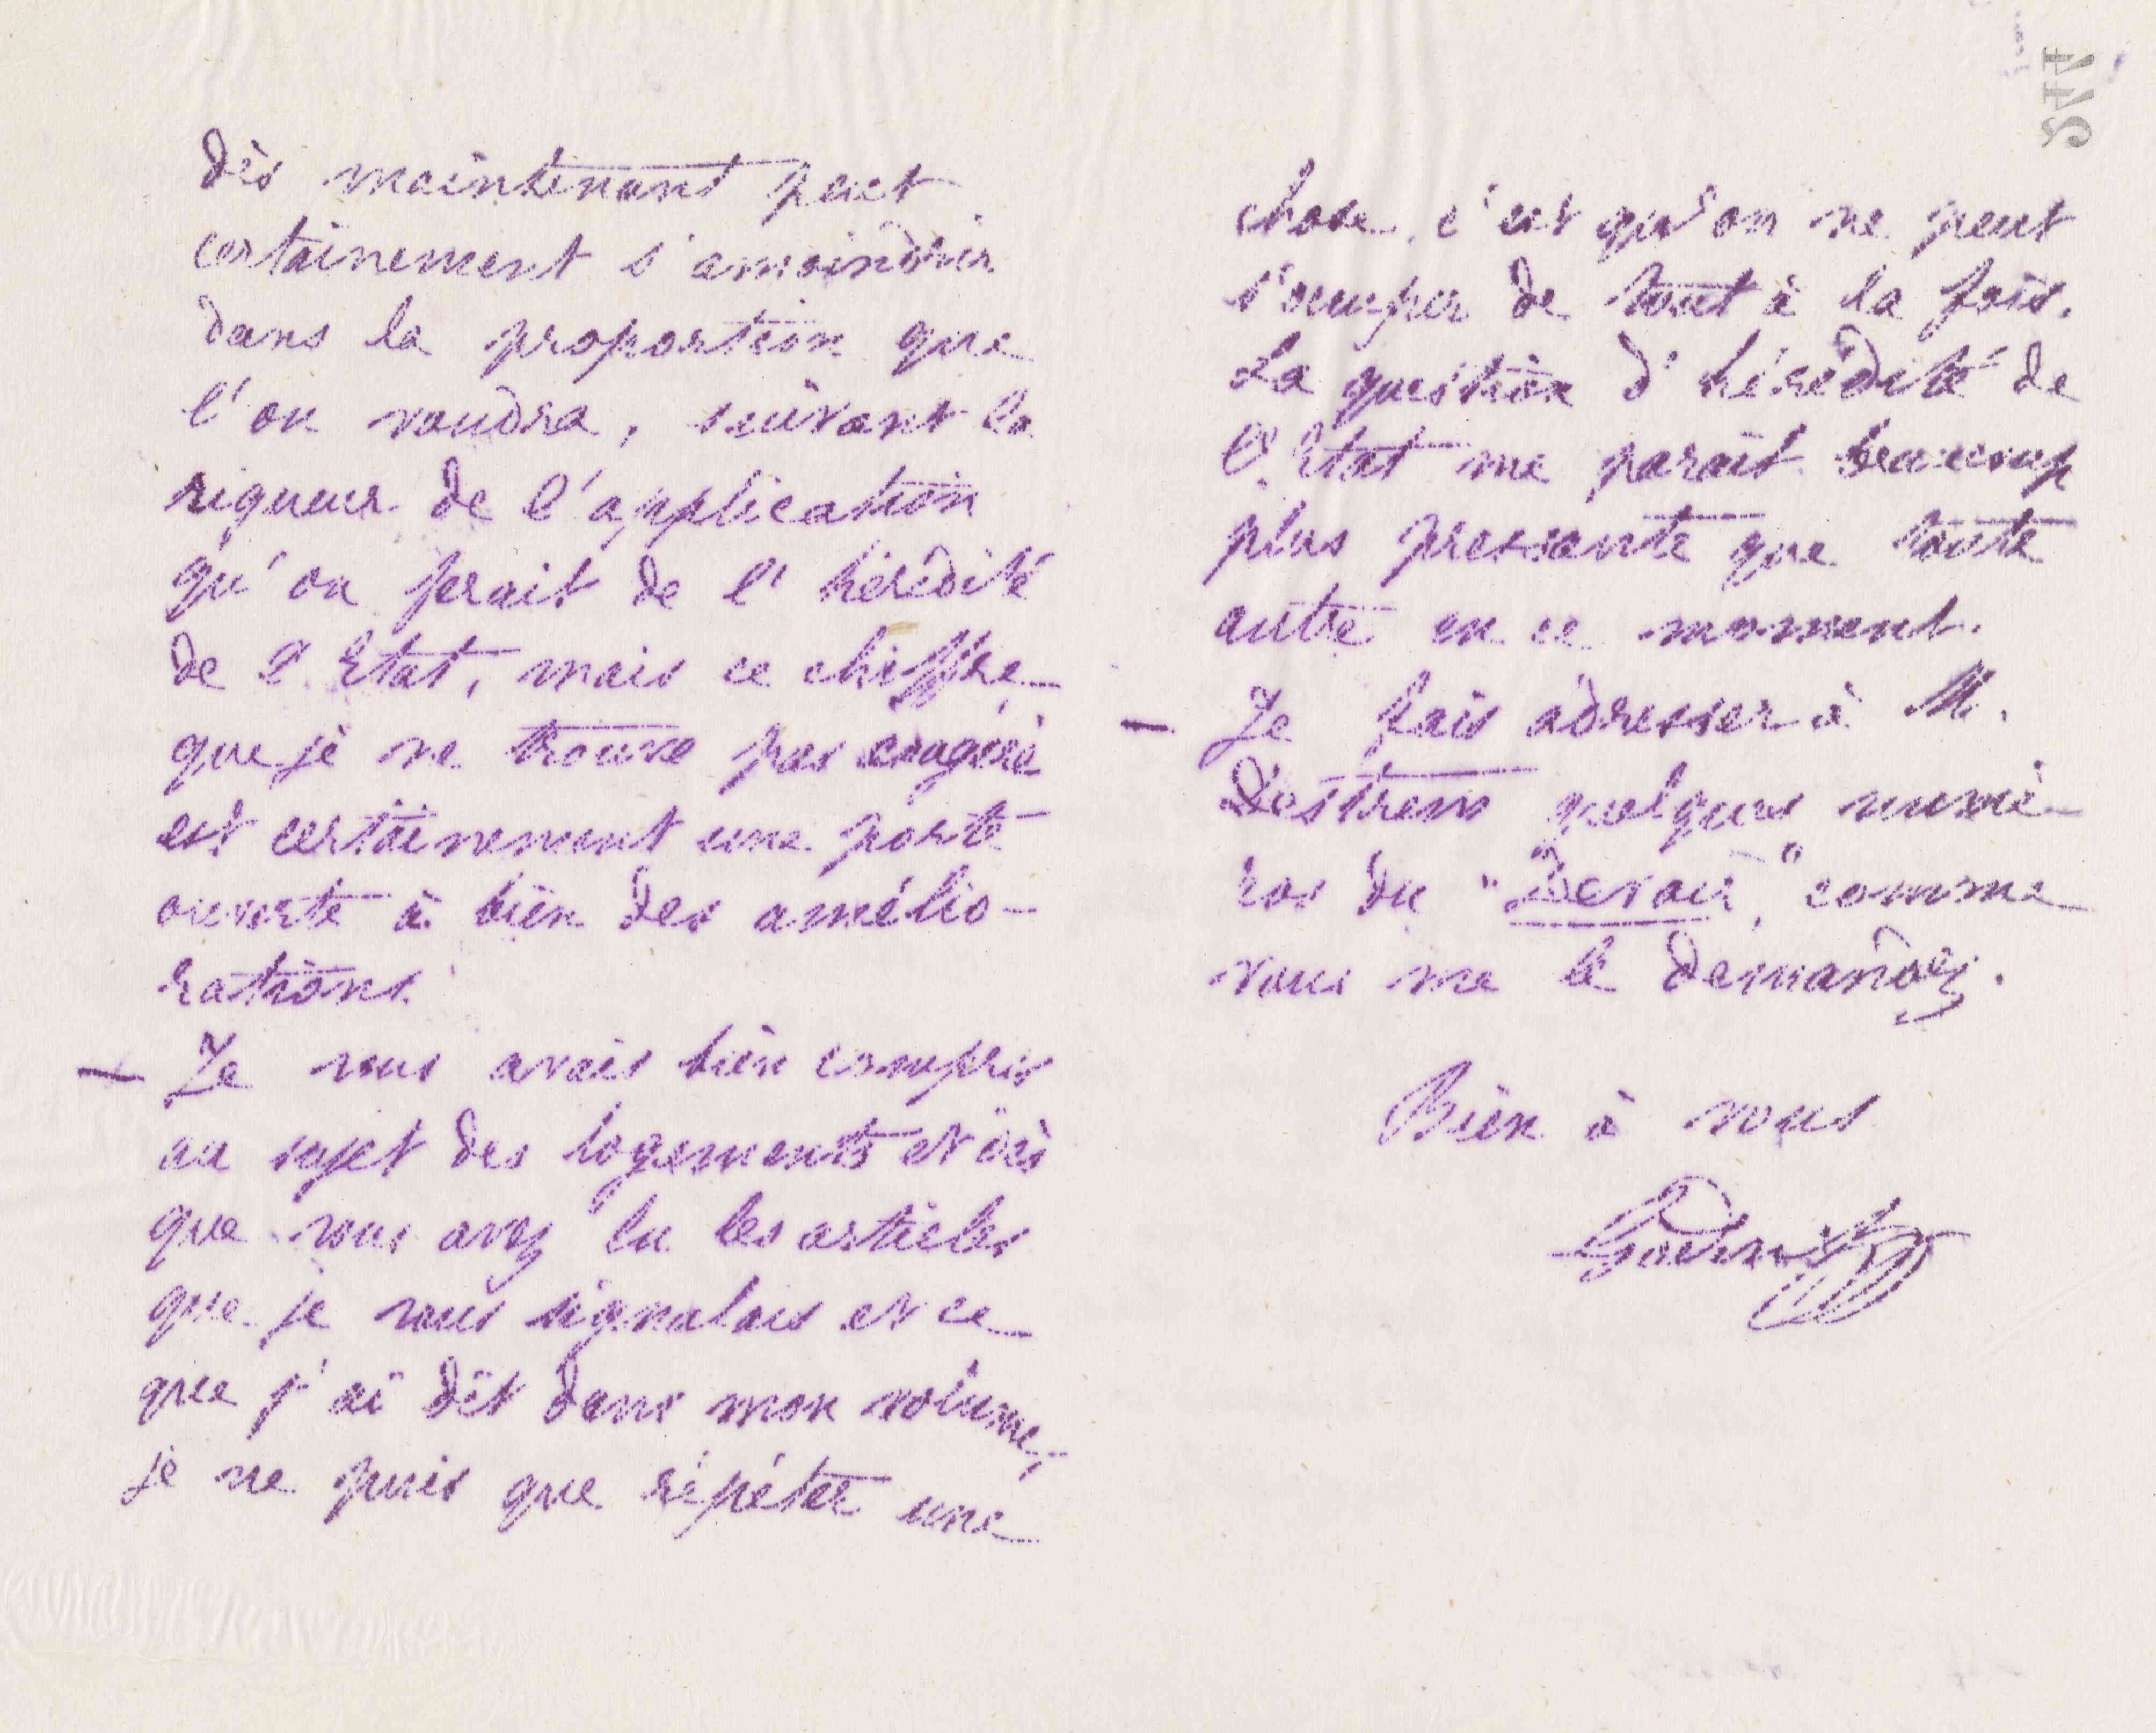 dès maintenant peut
certainement s'amoindrir
dans la proportion que
l'on voudra, suivant la
rigueur de l'application
qu'on ferait de l'hérédité
de l'Etat, mais ce chiffre
que je ne trouve pas exagéré
est certainement une porte
ouverte à bien des amélio-
rations.
— Je vous avais bien compris
au sujet des logements et dès
que vous avez lu les articles
que je vous signalais et ce
que j'ai dit dans mon volume,
je ne puis que répéter une
chose, c'est qu'on ne peut
s'occuper de tout à la fois.
La question d'hérédité de
l'Etat me paraît beaucoup
plus pressante que toute
autre en ce moment.
— Je fais adresser à M.
Destrem quelques numé-
ros du "Devoir," comme
vous me le demandez.
Bien à vous
Godin